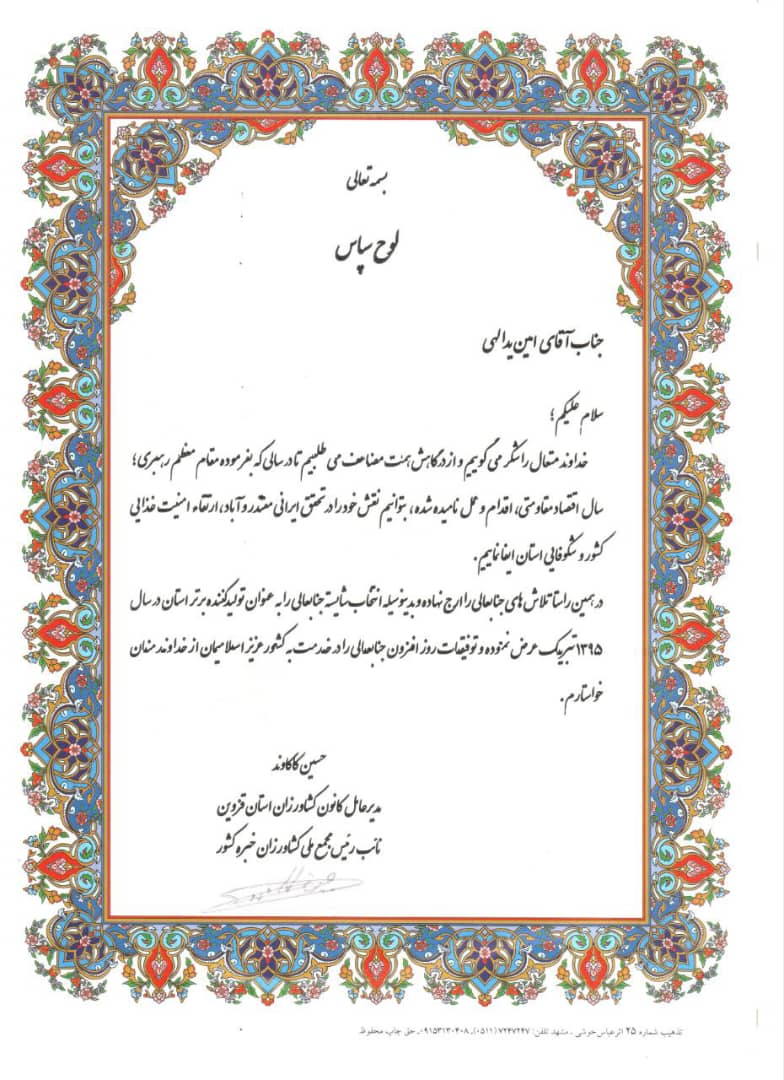 بسمه تعالی
لوح سپاس
جناب آقای امین یدالهی
سلام علیکم؛
خداوند متعال را شکر می گوییم و از درگاهش همت مضاعف می طلبیم تا در سالی که بفرموده مقام معظم رهبری؛
سال اقتصاد مقاومتی، اقدام و عمل نامیده شده، بتوانیم نقش خود را در تحقق ایرانی مقتدر و آباد، ارتقاء امنیت غذایی
کشور و شکوفایی استان ایفا نماییم.
در همین راستا تلاش های جنابعالی را ارج نهاده و بدینوسیله انتخاب شایسته جنابعالی را به عنوان تولیدکننده برتر استان در سال
۱۳۹۵ تبریک عرض نموده و توفیقات روز افزون جنابعالی را در خدمت به کشور عزیز اسلامیمان از خداوند منان
خواستارم.
حسین کاکاوند
مدیرعامل کانون کشاورزان استان قزوین
نائب رئیس مجمع ملی کشاورزان خبره کشور
تذهیب شماره ۲۵ اثر عباس خوشی - مشهد تلفن: ۷۲۴۷۲۴۷ (۰۵۱۱)، ۰۹۱۵۳۱۳۰۴۰۸، حق چاپ محفوظ